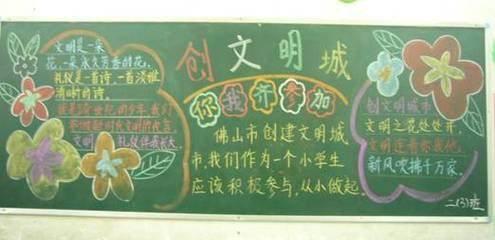 文明是一朵
花,一朵永久芳香的花。
礼仪是一首诗,一首淡雅
清晰的诗。
文明 礼仪伴我长大。
创文明城
你我齐参加
佛山市创建文明城
市,我们作为一个小学生
应该积极参与,从小做起。
创文明城市
文明之花处处开,
文明连着你我他,
新风吹拂千万家.
二(3)班